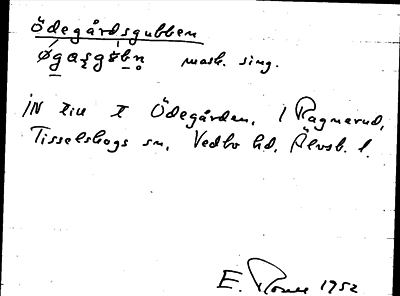 Ödegårdsgubben
mask. sing.
IN till t Ödegården, / Ragnerud,
Tisselskogs sn, Vedbo hd, Älvsb. l.
E. 1952